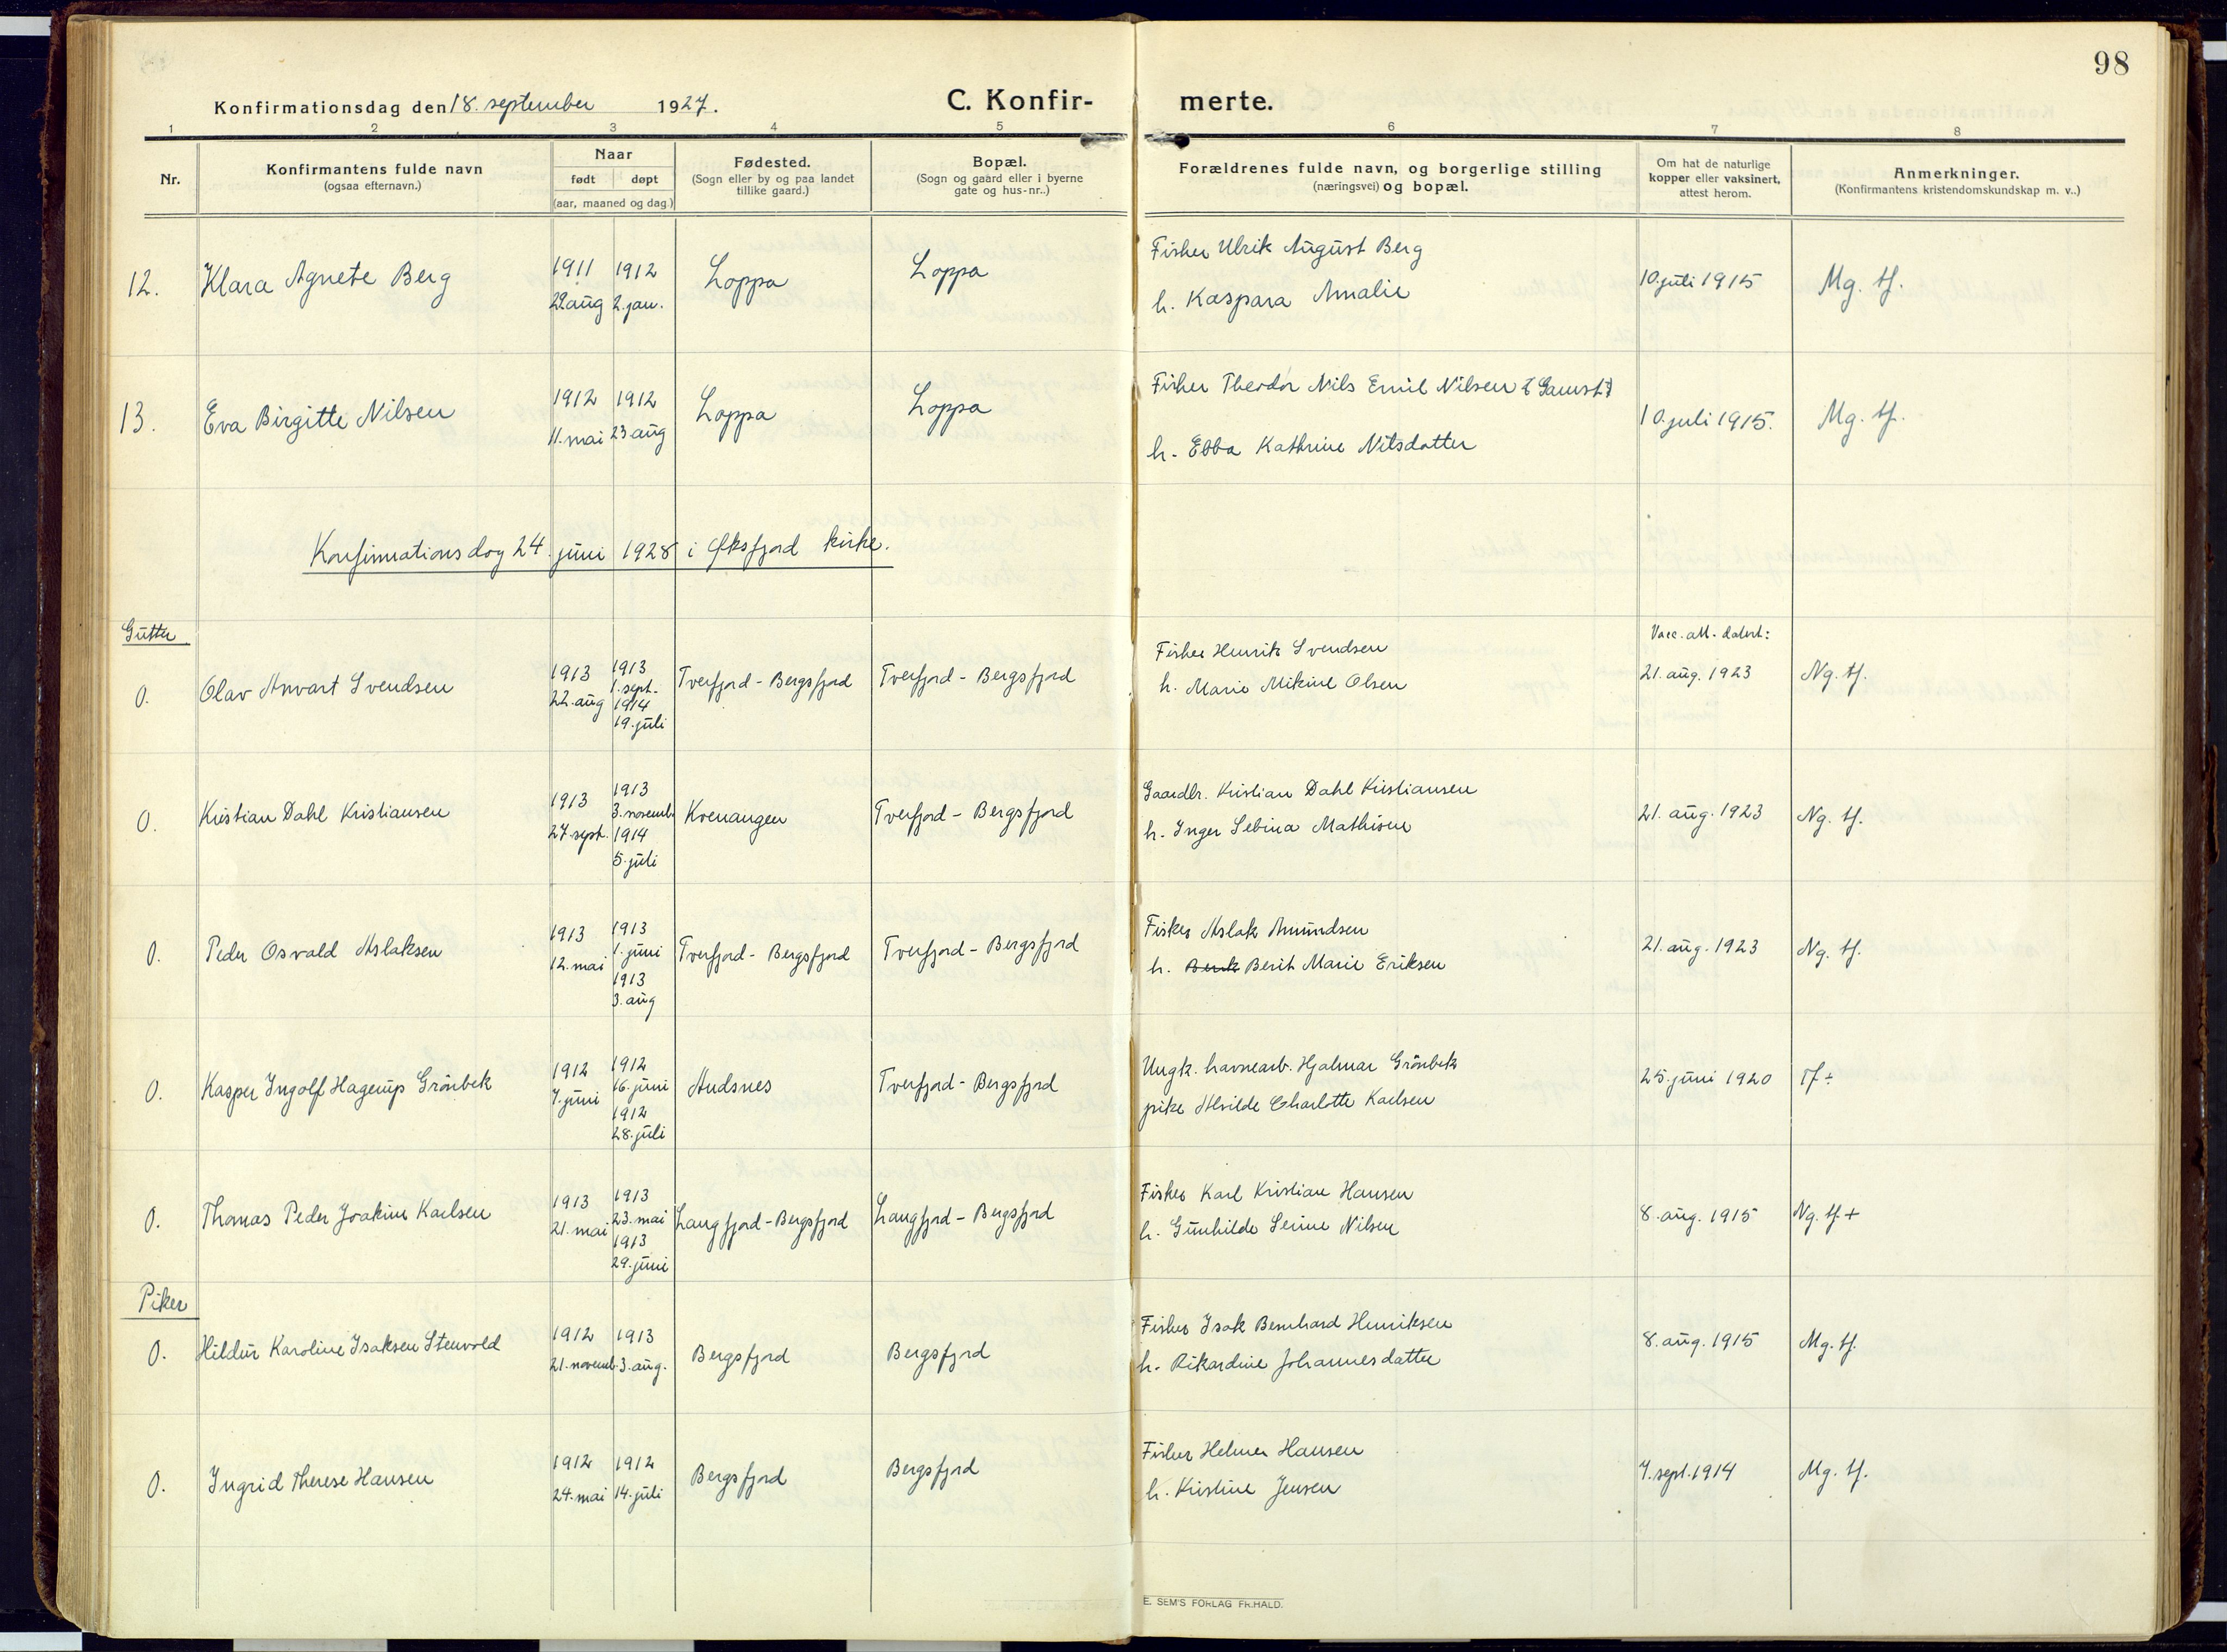 98
Konfirmationsdag den 18. september 1927.
C. Konfirmerte.
1 2 3 4 5 6 7 8
Nr.
Konfirmantens fulde navn
(ogsaa efternavn.)
Naar
født døpt
(aar, maaned og dag.)
Fødested.
(Sogn eller by og paa landet
tillike gaard.)
Bopæl.
(Sogn og gaard eller i byerne
gate og hus-nr..)
Forældrenes fulde navn, og borgerlige stilling
(næringsvei) og bopæl.
Om hat de naturlige
kopper eller vaksinert,
attest herom.
Anmerkninger.
(Konfirmantens kristendomskundskap m. v..)
12. Klara Agnete Berg
1911 1912
29. aug 2. jan.
Loppa Loppa
Fisker Ulrik August Berg
h. Kaspara Amalie
10. juli 1915 Mg. tf.
13. Eva Birgitte Nilsen
1912 1912
11. mai 23 aug
Loppa Loppa
Fisker Theodor Nils Emil Nilsen
h. Ebba Kathrine Nilsdatter
10. juli 1915. Mg. tf.
Konfirmationsdag 24. juni 1928 i Øksfjord kirke.
Gutter
Vacc. att. datert:
0. Olav Anvart Svendsen
1913 1913
22. aug 1. sept.
1914
19. juli
Tverfjord - Bergsfjord Tverfjord - Bergsfjord
Fisker Henrik Svendsen
h. Marie Mikine Olsen
21. aug. 1923 Ng. tf.
0. Kristian Dahl Kristiansen
1913 1913
27. sept. 3. novemb.
1914
5. juli
Kvenangen Tverfjord - Bergsfjord
Gaardbr. Kristian Dahl Kristiansen
h. Inger Sebina Mathisen
21. aug. 1923 Ng. tf.
0. Peder Osvald Aslaksen
1913 1913
12. mai 1. juni
1913
3. aug
Tverfjord - Bergsfjord Tverfjord - Bergsfjord
Fisker Aslak Amundsen
h. Berit Marie Eriksen
21. aug. 1923 Ng. tf.
0. Kasper Ingolf Hagerup Grönbek
1912 1912
7. juni 16. juni
1912
28. juli
Andsnes Tverfjord - Bergsfjord
Ungk. havnearb. Hjalmar Grönbek
pike Alvilde Charlotte Karlsen
25. juni 1920 Tf ÷
0. Thomas Peder Joakim Karlsen
1913 1913
21. mai 23. mai
1913
29. juni
Langfjord - Bergsfjord Langfjord - Bergsfjord
Fisker Karl Kristian Hansen
h. Gunhilde Serine Nilsen
8. aug. 1915 Ng. tf +
Piker
0. Hildur Karoline Isaksen Stenvold
1912 1913
21. novemb. 3. aug.
Bergsfjord Bergsfjord
Fisker Isak Bernhard Henriksen
h. Rikardine Johannesdatter
8. aug. 1915 Mg. tf.
0. Ingrid Therese Hansen
1912 1912
24. mai 14. juli
Bergsfjord Bergsfjord
Fisker Helmer Hansen
h. Kristine Jensen
7. sept. 1914 Mg. tf.
E. SEM'S FORLAG FR.HALD.